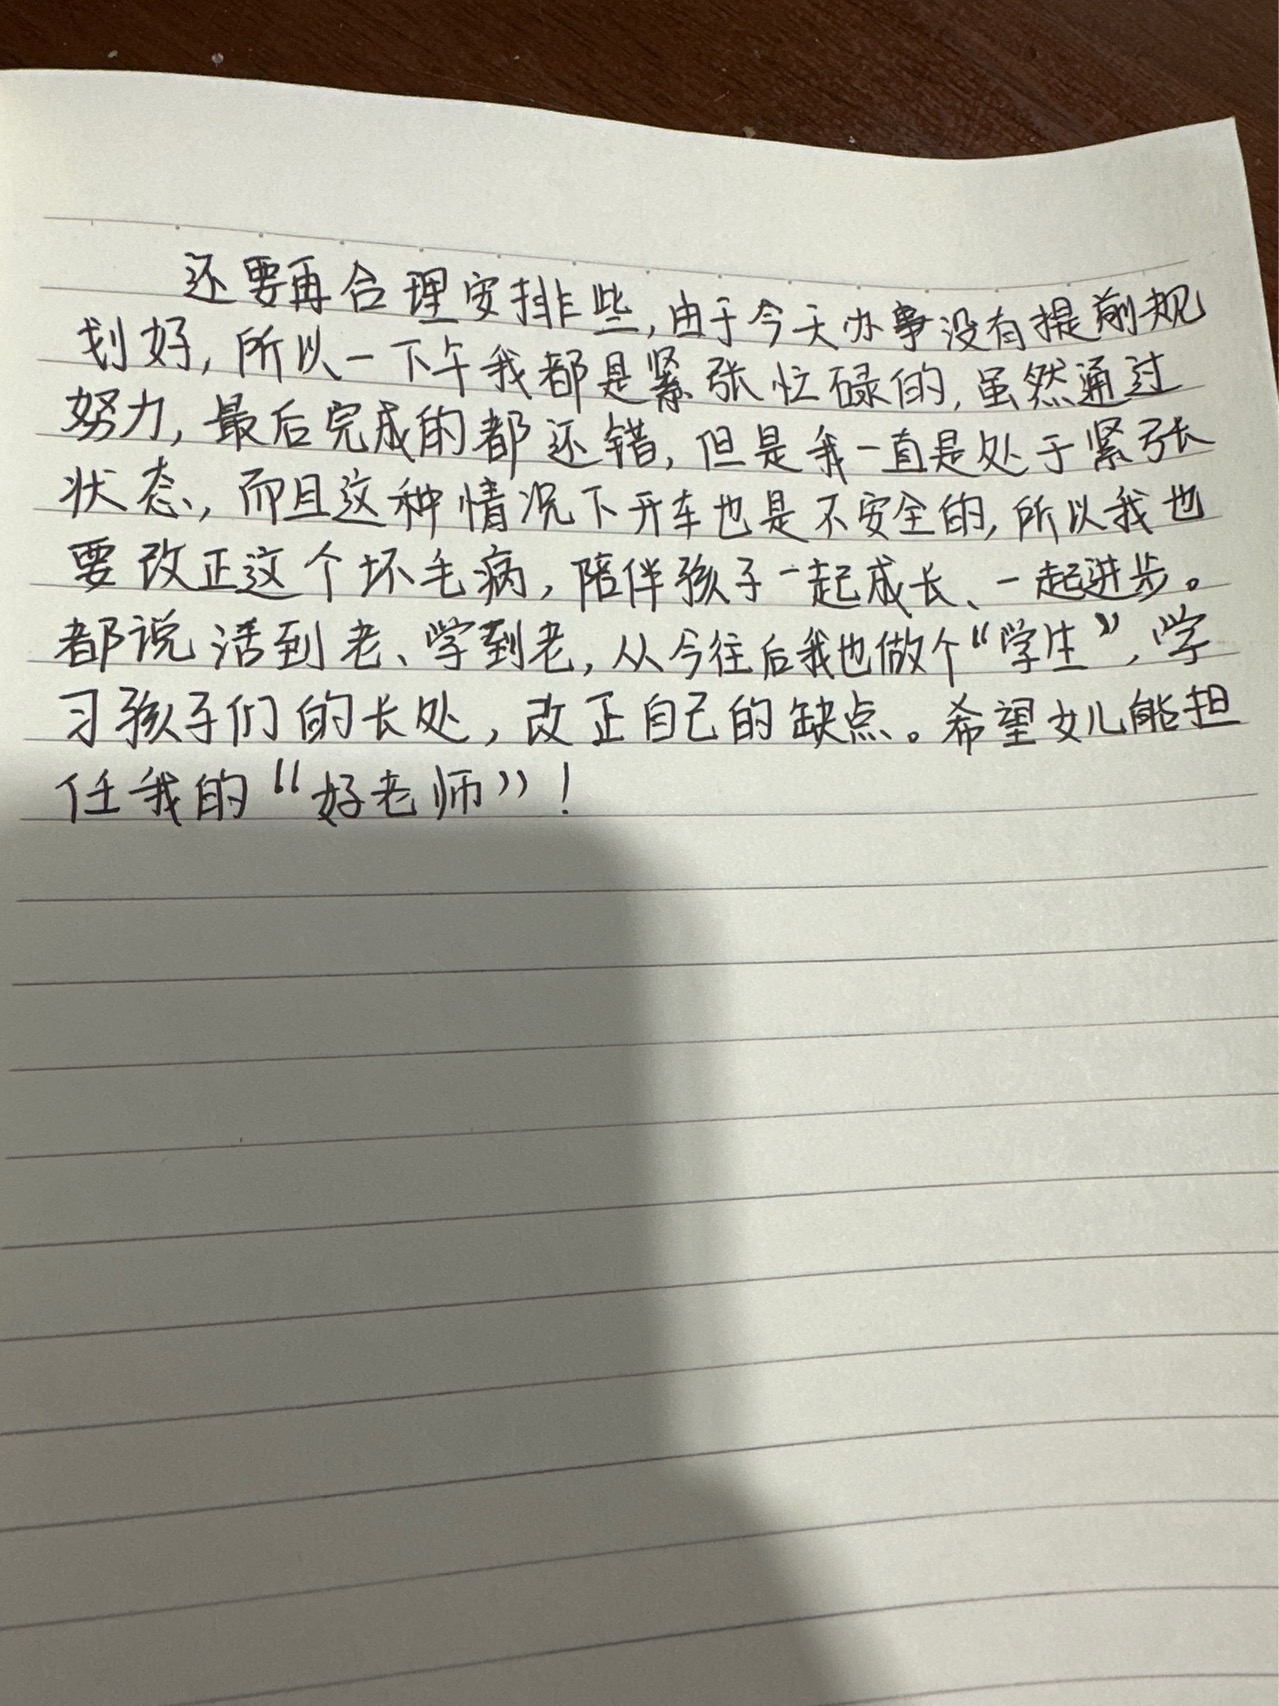 还要再合理安排些,由于今天办事没有提前规
划好,所以一下午我都是紧张忙碌的,虽然通过
努力,最后完成的都还错,但是我一直是处于紧张
状态,而且这种情况下开车也是不安全的,所以我也
要改正这个坏毛病,陪伴孩子一起成长、一起进步。
都说活到老、学到老,从今往后我也做个“学生”,学
习孩子们的长处,改正自己的缺点。希望女儿能担
任我的“好老师”!